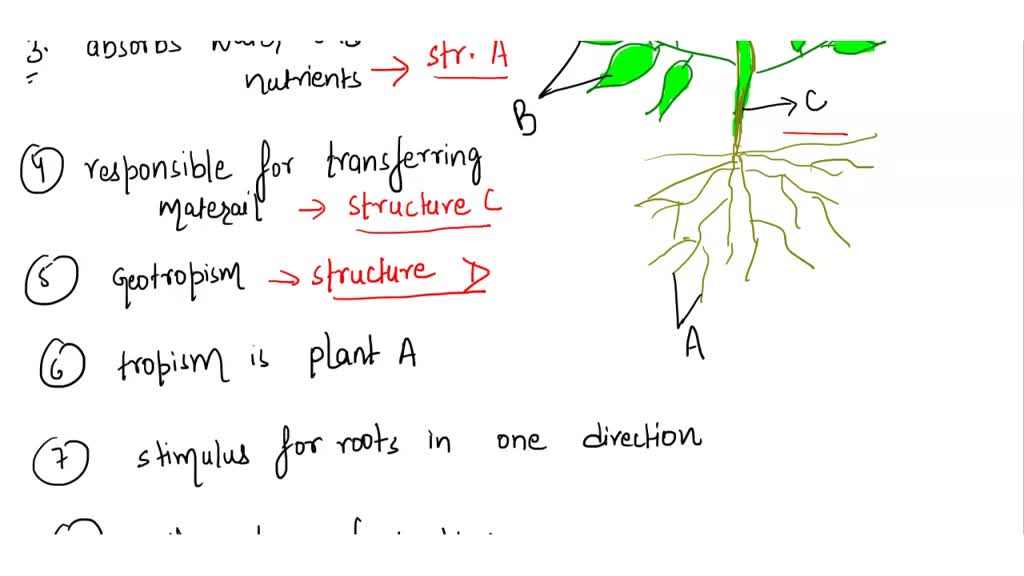 3. absorbs
nutrients → str. A
B
C
④ responsible for transferring
materail → structure C
⑤ Geotropism → structure D
A
⑥ tropism is plant A
⑦ stimulus for roots in one direction